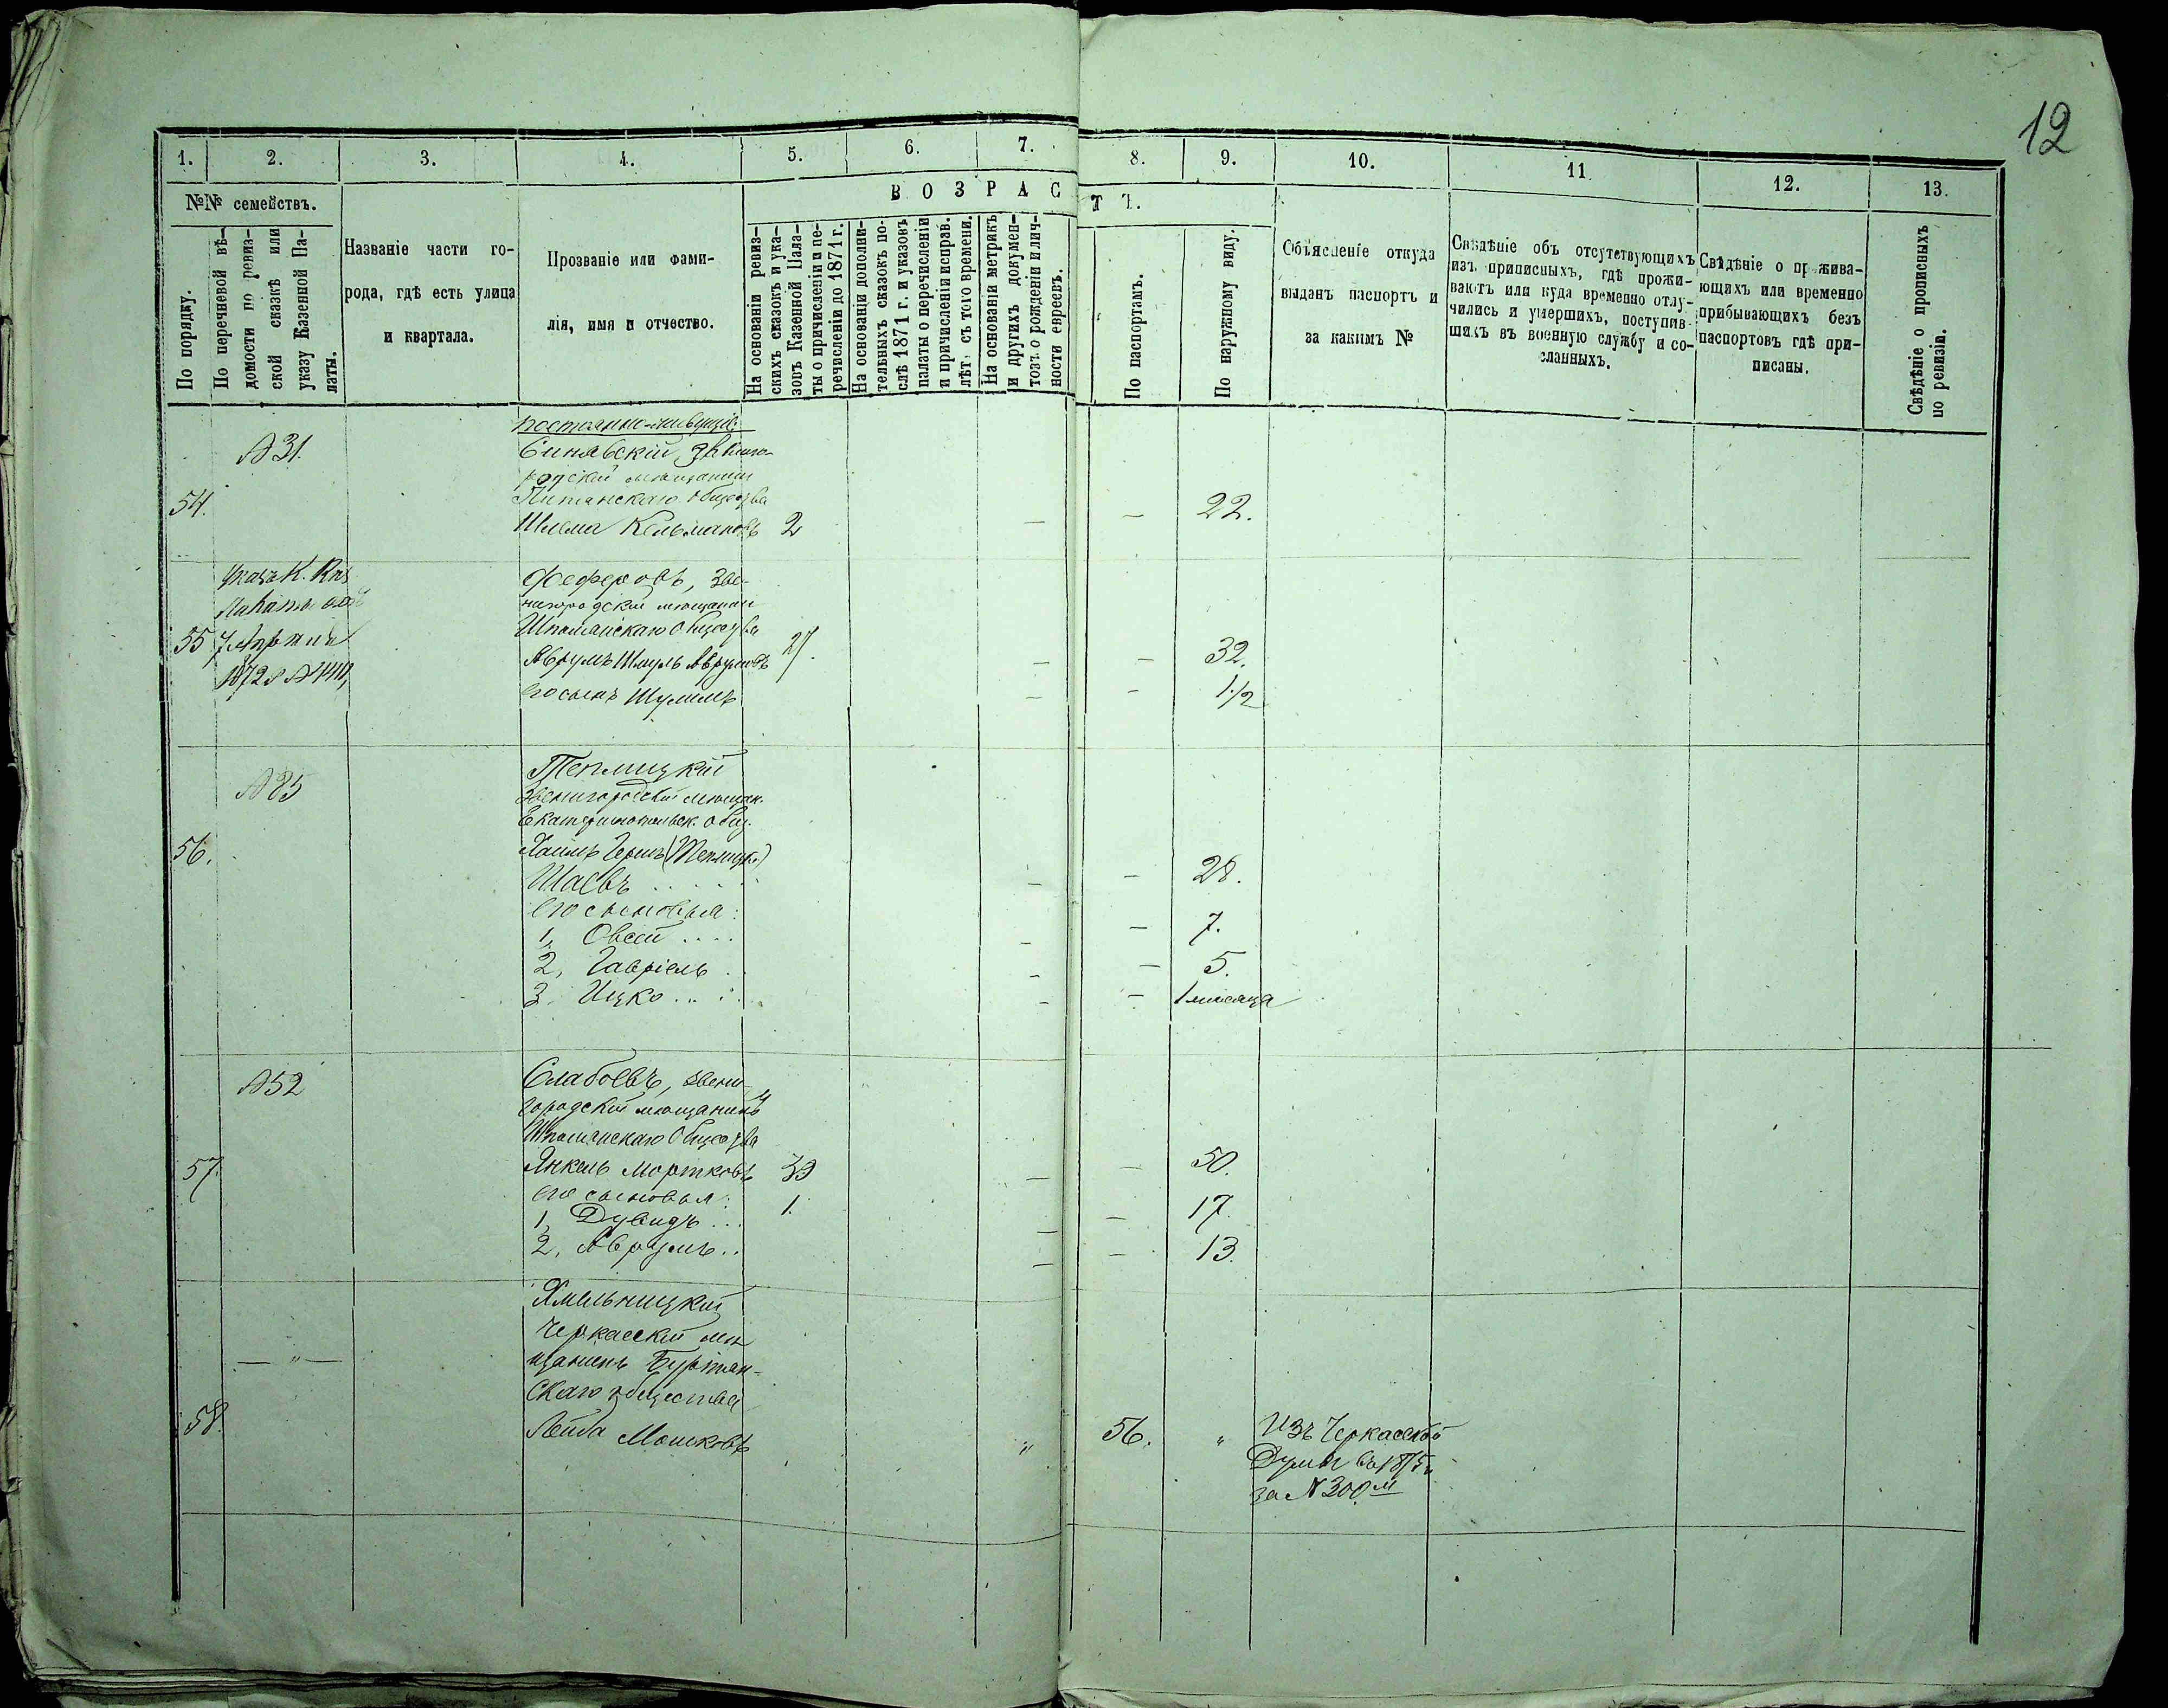 12
1. 2. 3. 4. 5. 6. 7. 8. 9. 10. 11. 12. 13.
№№ семействъ.
В О З Р А С Т Ъ.
По порядку.
По перечневой вѣ-
домости по ревиз-
ской сказкѣ или
указу Казенной Па-
латы.
Названіе части го-
рода, гдѣ есть улица
и квартала.
Прозваніе или фами-
лія, имя и отчество.
На основаніи ревиз-
скихъ сказокъ и ука-
зовъ Казенной Пала-
ты о причисленіи и пе-
речисленіи до 1871 г.
На основаніи дополни-
тельныхъ сказокъ по-
слѣ 1871 г. и указовъ
палаты о перечисленіи
и причисленіи исправ.
лѣтъ съ того времени.
На основаніи метрикъ
и другихъ докумен-
товъ о рожденіи и лич-
ности евреевъ.
По паспортамъ.
По наружному виду.
Объясненіе откуда
выданъ паспортъ и
за какимъ №
Свѣдѣніе объ отсутствующихъ
изъ приписныхъ, гдѣ прожи-
ваютъ или куда временно отлу-
чились и умершихъ, поступив-
шихъ въ военную службу и со-
сланныхъ.
Свѣдѣніе о прожива-
ющихъ или временно
прибывающихъ безъ
паспортовъ гдѣ при-
писаны.
Свѣдѣніе о прописныхъ
по ревизіи.
Постоянно-живущіе:
№ 31. Синявскій, Звѣниго-
родскій мѣщанинъ
общества
54. Шлема Кельмановъ 2 — — 22.
Указъ К. Каз
Феферовъ, Зве-
Палаты отъ
нигородскій мѣщанин
55 7 Апрѣля Шполянскаго Общества
1872 г. Аврумъ Шмуль Аврумовъ 27. — — 32.
его сынъ Шулимъ — — 1/2
№ 85 Теплицкій
Звенигородскій мѣщан.
Екатеринопольск. общ.
56. Хаимъ Герш (Теплицкій)
Шаевъ . . . . — — 28.
его сыновья:
1, Овсей . . . . — — 7.
2, Гавріель . . — — 5.
3, Ицко . . . . — — 1 мѣсяца
№ 52 Слабоевъ, звени-
городскій мѣщанинъ
Шполянскаго Общества
57. Янкель Мортковъ 39 — — 50.
его сыновья:
1, Дувидъ . . . 1. — — 17.
2, Аврумъ . . — — 13.
Хмельницкій
Черкасскій мѣ
— " — щанинъ Буртян-
скаго общества
58. Лейба Мошковъ " 56. " Изъ Черкасской
Думы въ 1875 г.
за № 300 м